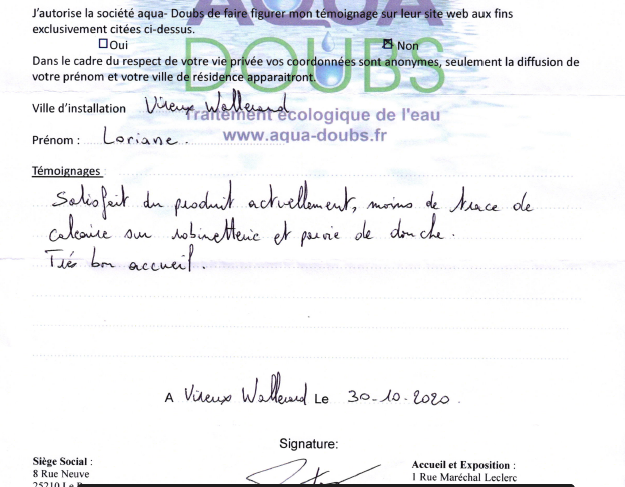 AQUA
DOUBS
J'autorise la société aqua- Doubs de faire figurer mon témoignage sur leur site web aux fins
exclusivement citées ci-dessus.
☐Oui ☒ Non
Dans le cadre du respect de votre vie privée vos coordonnées sont anonymes, seulement la diffusion de
votre prénom et votre ville de résidence apparaitront.
Ville d'installation Vireux Wallerand
Traitement écologique de l'eau
Prénom : Loriane.
www.aqua-doubs.fr
Témoignages :
Satisfait du produit actuellement, moins de trace de
calcaire sur robinetterie et paroie de douche.
Trés bon accueil.
A Vireux Wallerand Le 30-10-2020.
Signature:
Siège Social : Accueil et Exposition :
8 Rue Neuve 1 Rue Maréchal Leclerc
25210